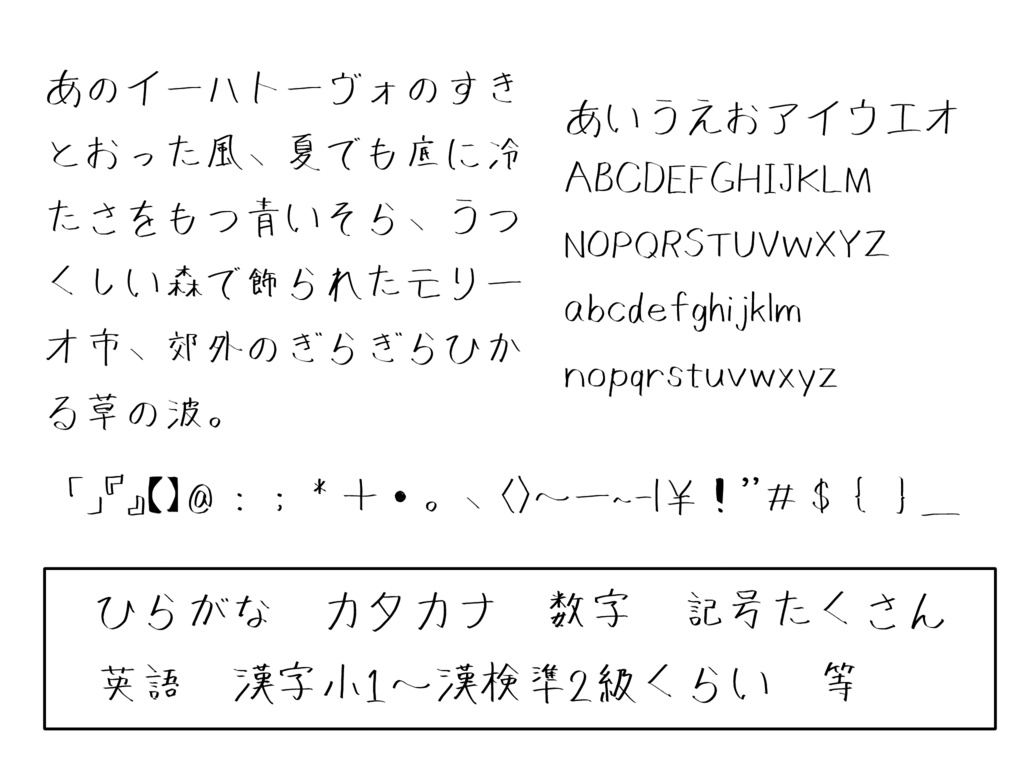 あのイーハトーヴォのすき
とおった風、夏でも底に冷
たさをもつ青いそら、うつ
くしい森で飾られたモリー
オ市、郊外のぎらぎらひか
る草の波。
あいうえおアイウエオ
ABCDEFGHIJKLM
NOPQRSTUVWXYZ
abcdefghijklm
nopqrstuvwxyz
「」『』【】@：；*＋・。、〈〉～ー~-|￥！”＃＄｛｝＿
ひらがな　カタカナ　数字　記号たくさん
英語　漢字小1～漢検準2級くらい　等